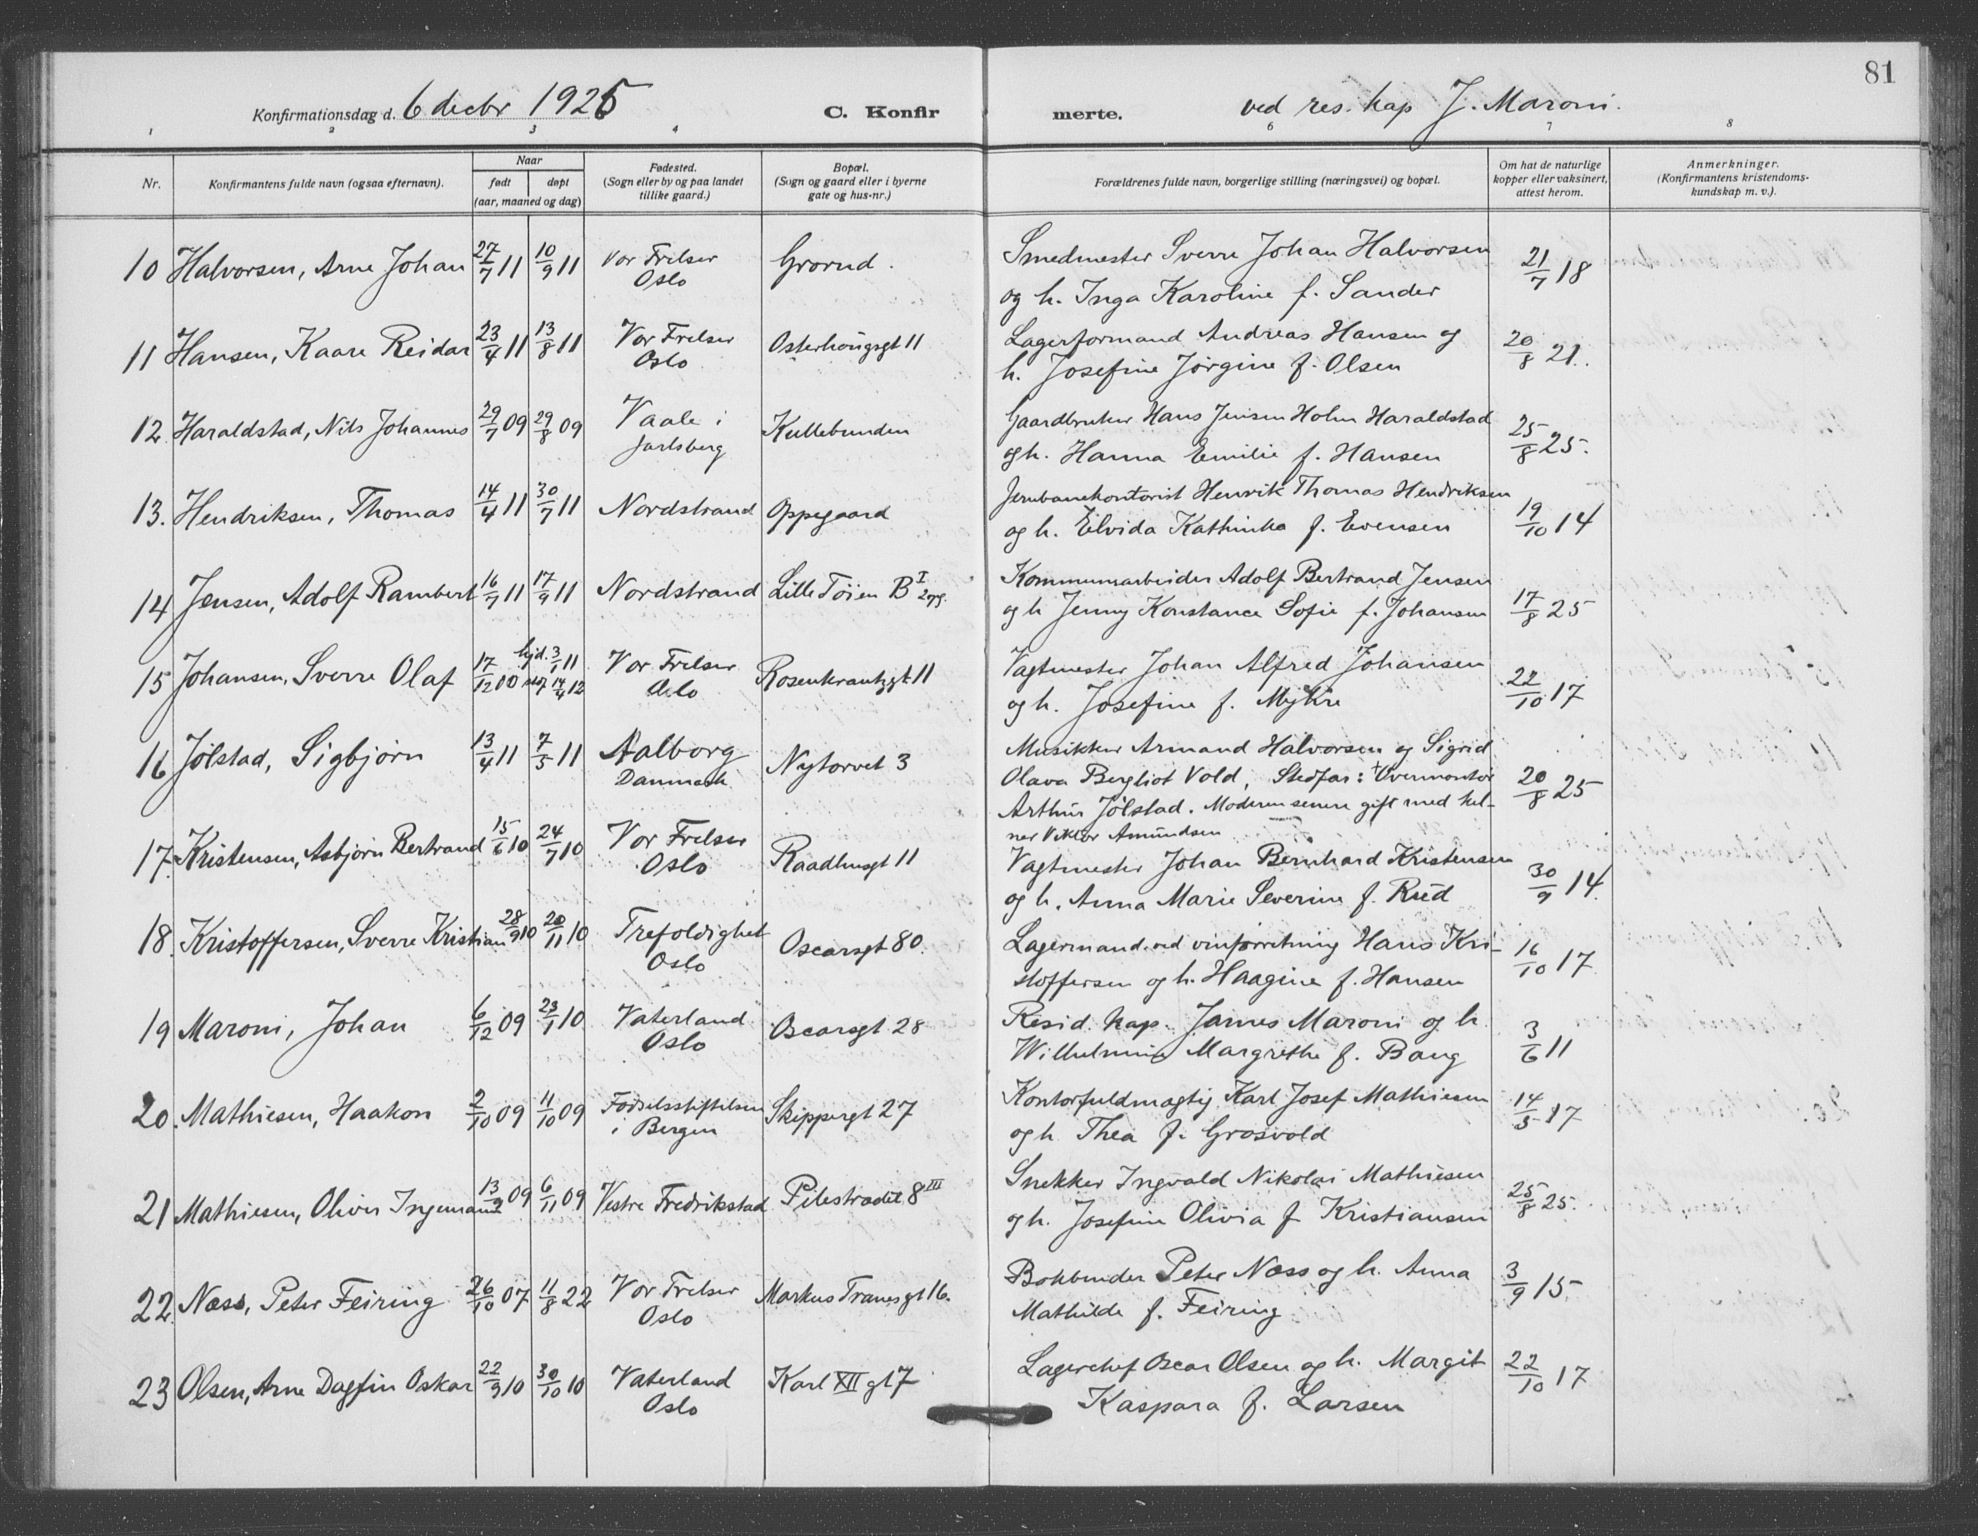 81
Konfirmationsdag d. 6 decbr 1925 C. Konfir merte. ved res. kap J. Maroni.
1 2 3 4 6 7 8
Nr. Konfirmantens fulde navn (ogsaa efternavn). Naar født døpt (aar, maaned og dag) Fødested. (Sogn eller by og paa landet tillike gaard.) Bopæl. (Sogn og gaard eller i byerne gate og hus-nr.) Forældrenes fulde navn, borgerlige stilling (næringsvei) og bopæl. Om hat de naturlige kopper eller vaksinert, attest herom. Anmerkninger. (Konfirmantens kristendoms-kundskap m. v.).
10 Halvorsen, Arne Johan 27/7 11 10/9 11 Vor Frelser Oslo Grorud. Smedmester Sverre Johan Halvorsen
og h. Inga Karoline f. Sander 21/7 18
11 Hansen, Kaare Reidar 23/4 11 13/8 11 Vor Frelser Oslo Osterhougsgt 11 Lagerformand Andreas Hansen og
h. Josefine Jørgine f. Olsen 20/8 21.
12. Haraldstad, Nils Johannes 29/7 09 29/8 09 Vaale i Jarlsberg Kullebunden Gaardbruker Hans Jensen Holm Haraldstad
og h. Hanna Emilie f. Hansen 25/8 25.
13. Hendriksen, Thomas 14/4 11 30/7 11 Nordstrand Oppegaard Jernbanekontorist Henrik Thomas Hendriksen
og h. Elvida Kathinka f. Evensen 19/10 14
14 Jensen, Adolf Rambert 16/7 11 17/9 11 Nordstrand Lille Töien B I 2 og. Kommunearbeider Adolf Bertrand Jensen
og h Jenny Konstance Sofie f. Johansen 17/8 25
15 Johansen, Sverre Olaf 17/12 10 hjd. 3/1 11 14/4 12 Vor Frelser Oslo Rosenkrantzgt 11 Vagtmester Johan Alfred Johansen
og h. Josefine f. Myhre 22/10 17
16 Jølstad, Sigbjørn 13/4 11 7/5 11 Aalborg Danmark Nytorvet 3 Musikker Armand Halvorsen og Sigrid
Olava Bergliot Vold, Stedfar: Overmontør
Arthur Jølstad. Moderen senere gift med kel-
ner Viktor Amundsen 20/8 25
17. Kristensen, Asbjørn Bertrand 15/6 10 24/7 10 Vor Frelser Oslo Raadhusgt 11 Vagtmester Johan Bernhard Kristensen
og h. Anna Marie Severine f. Rud 30/9 14
18. Kristoffersen, Sverre Kristian 28/9 10 20/11 10 Trefoldighet Oslo Oscarsgt 80. Lagermand ved vinforretning Hans Kri-
stoffersen og h. Haagine f. Hansen 16/10 17
19 Maroni, Johan 6/12 09 23/1 10 Vaterland Oslo Oscarsgt 28 Resid. kap. James Maroni og h.
Wilhelmine Margrethe f. Bang 3/6 11
20. Mathiesen, Haakon 2/10 09 11/10 09 Fødselsstiftelsen i Bergen Skippergt 27 Kontorfuldmægtig Karl Josef Mathiesen
og h. Thea f. Grosvold 14/5 17
21 Mathiesen, Oliver Ingemann 13/9 09 6/11 09 Vestre Fredrikstad Pilestrædet 8 III Snekker Ingvald Nikolai Mathiesen
og h. Josefine Olivia f Kristiansen 25/8 25.
22. Næss, Peter Feiring 26/10 07 11/8 22 Vor Frelser Oslo Markus Tranesgt 16. Bokbinder Peter Næss og h. Anna
Mathilde f. Feiring 3/9 15
23 Olsen, Arne Dagfin Oskar 22/9 10 30/10 10 Vaterland Oslo Karl XII gt 7 Lagerchef Oscar Olsen og h. Margit
Kaspara f. Larsen 22/10 17